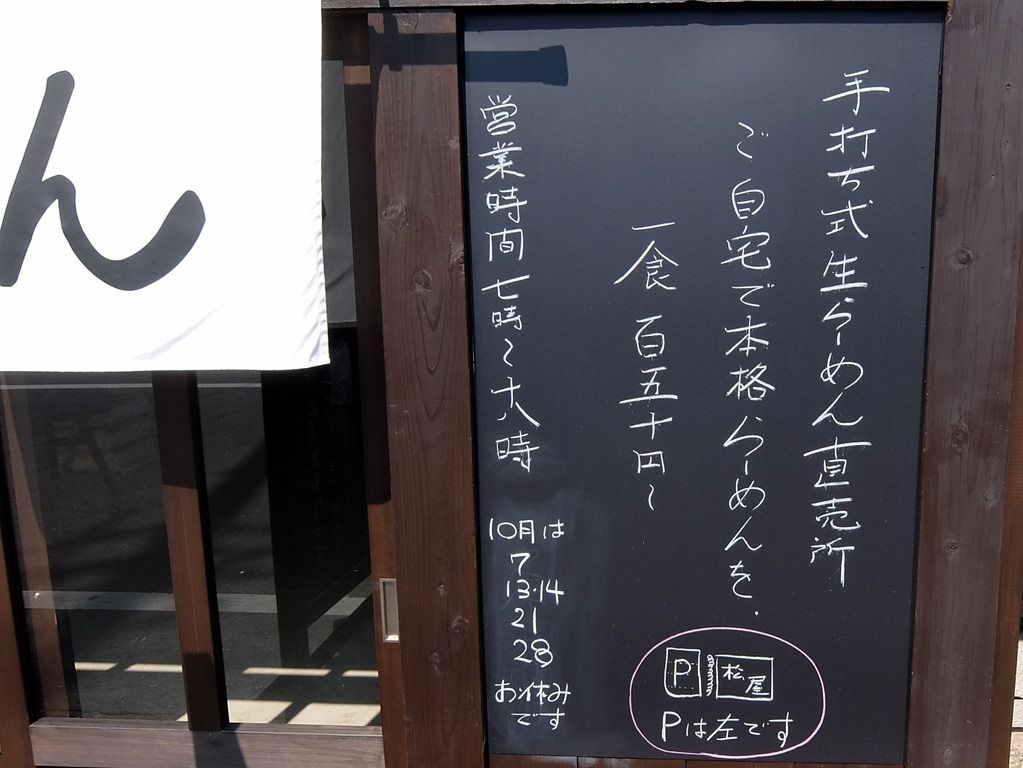 手打ち式生らーめん直売所
ご自宅で本格らーめんを.
一食 百五十円〜
営業時間 七時〜大時
10月は
7
13・14
21
28
お休み
です
P 松屋
Pは左です
ん